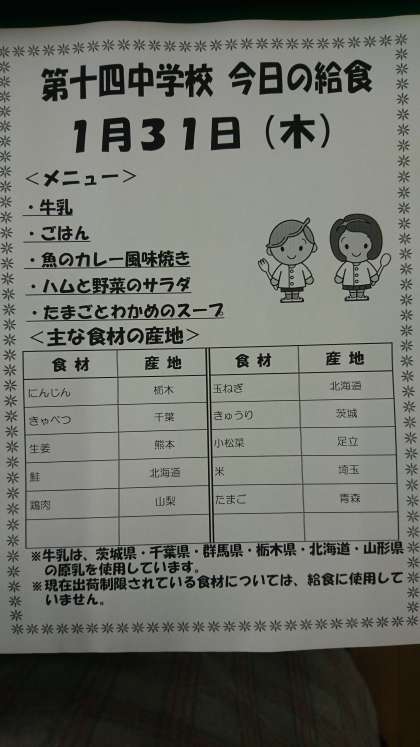 第十四中学校 今日の給食
1月31日（木）
＜メニュー＞
・牛乳
・ごはん
・魚のカレー風味焼き
・ハムと野菜のサラダ
・たまごとわかめのスープ
＜主な食材の産地＞
食材 産地 食材 産地
にんじん 栃木 玉ねぎ 北海道
きゃべつ 千葉 きゅうり 茨城
生姜 熊本 小松菜 足立
鮭 北海道 米 埼玉
鶏肉 山梨 たまご 青森
※牛乳は、茨城県・千葉県・群馬県・栃木県・北海道・山形県
の原乳を使用しています。
※現在出荷制限されている食材については、給食に使用して
いません。